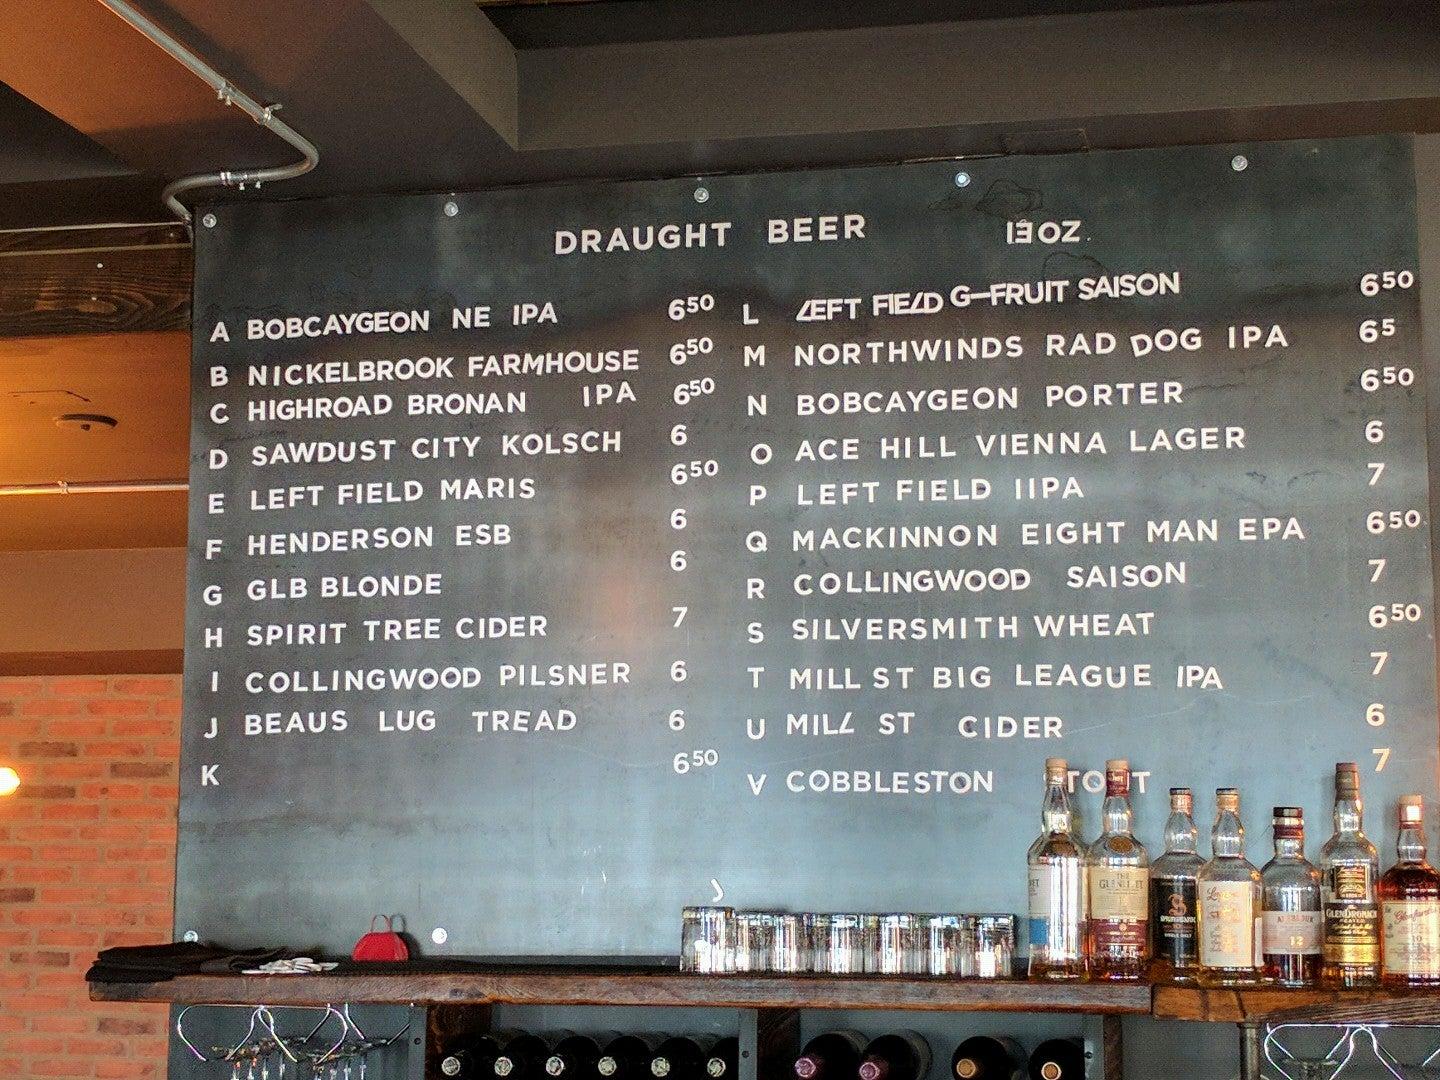 DRAUGHT BEER 13 OZ.
A BOBCAYGEON NE IPA 650
B NICKELBROOK FARMHOUSE 650
C HIGHROAD BRONAN IPA 650
D SAWDUST CITY KOLSCH 6
E LEFT FIELD MARIS 650
F HENDERSON ESB 6
G GLB BLONDE 6
H SPIRIT TREE CIDER 7
I COLLINGWOOD PILSNER 6
J BEAUS LUG TREAD 6
K 650
L LEFT FIELD G-FRUIT SAISON 650
M NORTHWINDS RAD DOG IPA 65
N BOBCAYGEON PORTER 650
O ACE HILL VIENNA LAGER 6
P LEFT FIELD IIPA 7
Q MACKINNON EIGHT MAN EPA 650
R COLLINGWOOD SAISON 7
S SILVERSMITH WHEAT 650
T MILL ST BIG LEAGUE IPA 7
U MILL ST CIDER 6
V COBBLESTON TOUT 7
GLENDRONACH
12